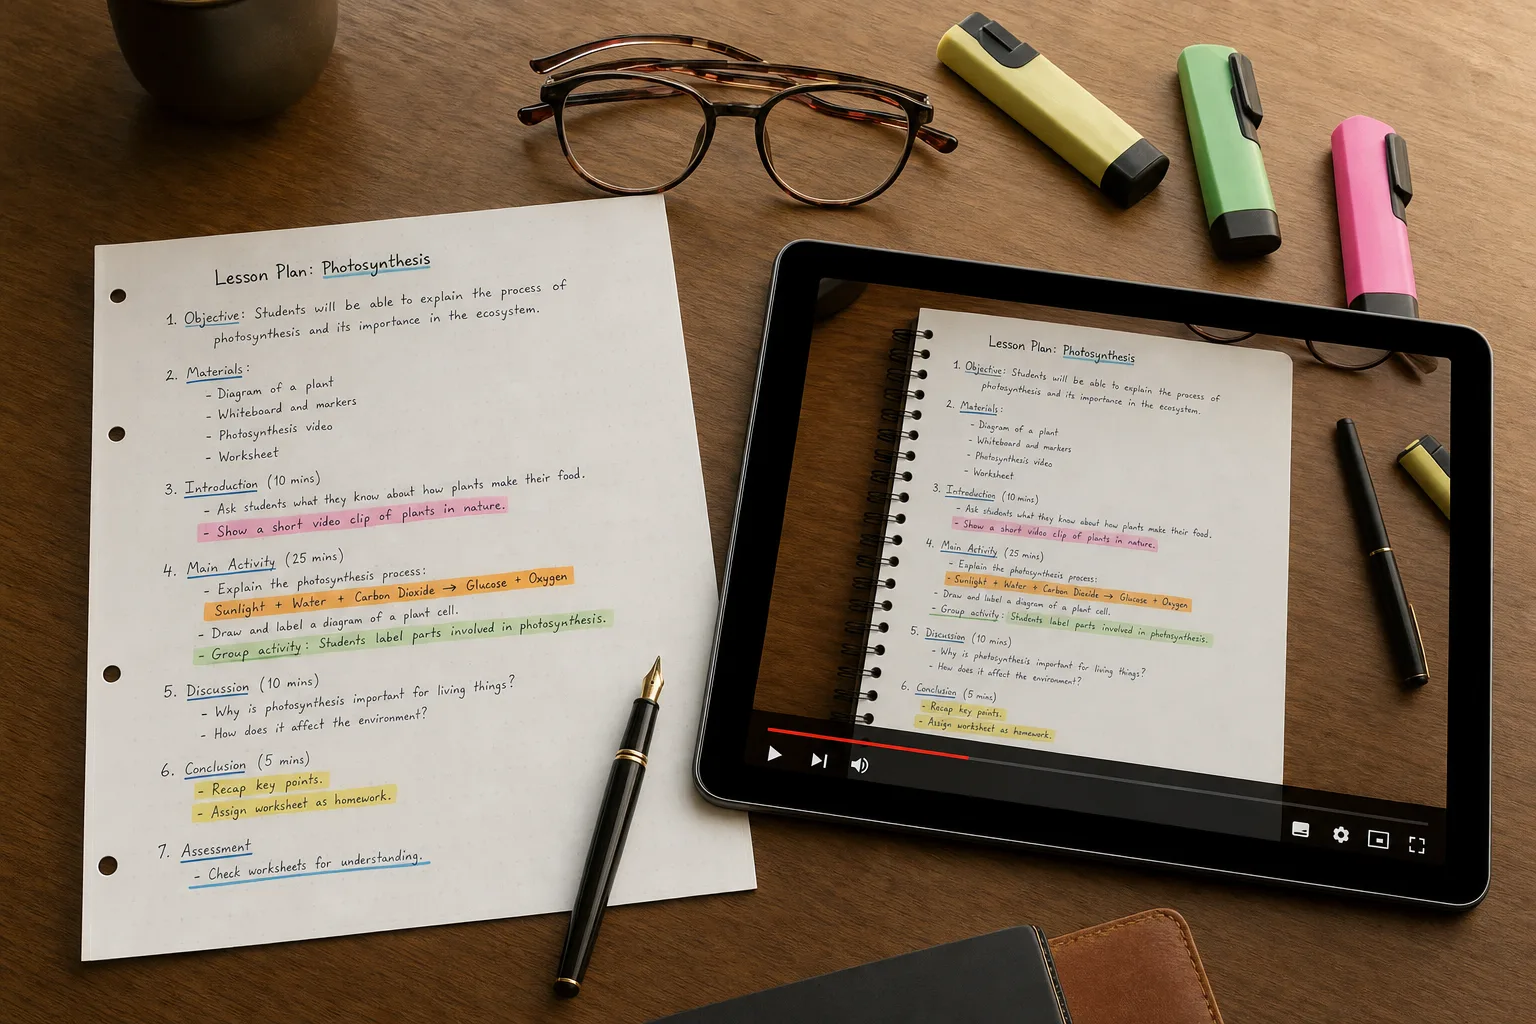 Lesson Plan: Photosynthesis
1. Objective: Students will be able to explain the process of
photosynthesis and its importance in the ecosystem.
2. Materials:
- Diagram of a plant
- Whiteboard and markers
- Photosynthesis video
- Worksheet
3. Introduction (10 mins)
- Ask students what they know about how plants make their food.
- Show a short video clip of plants in nature.
4. Main Activity (25 mins)
- Explain the photosynthesis process:
Sunlight + Water + Carbon Dioxide → Glucose + Oxygen
- Draw and label a diagram of a plant cell.
- Group activity: Students label parts involved in photosynthesis.
5. Discussion (10 mins)
- Why is photosynthesis important for living things?
- How does it affect the environment?
6. Conclusion (5 mins)
- Recap key points.
- Assign worksheet as homework.
7. Assessment
- Check worksheets for understanding.
Lesson Plan: Photosynthesis
1. Objective: Students will be able to explain the process of
photosynthesis and its importance in the ecosystem.
2. Materials:
- Diagram of a plant
- Whiteboard and markers
- Photosynthesis video
- Worksheet
3. Introduction (10 mins)
- Ask students what they know about how plants make their food.
- Show a short video clip of plants in nature.
4. Main Activity (25 mins)
- Explain the photosynthesis process:
- Sunlight + Water + Carbon Dioxide → Glucose + Oxygen
- Draw and label a diagram of a plant cell.
- Group activity: Students label parts involved in photosynthesis.
5. Discussion (10 mins)
- Why is photosynthesis important for living things?
- How does it affect the environment?
6. Conclusion (5 mins)
- Recap key points.
- Assign worksheet as homework.